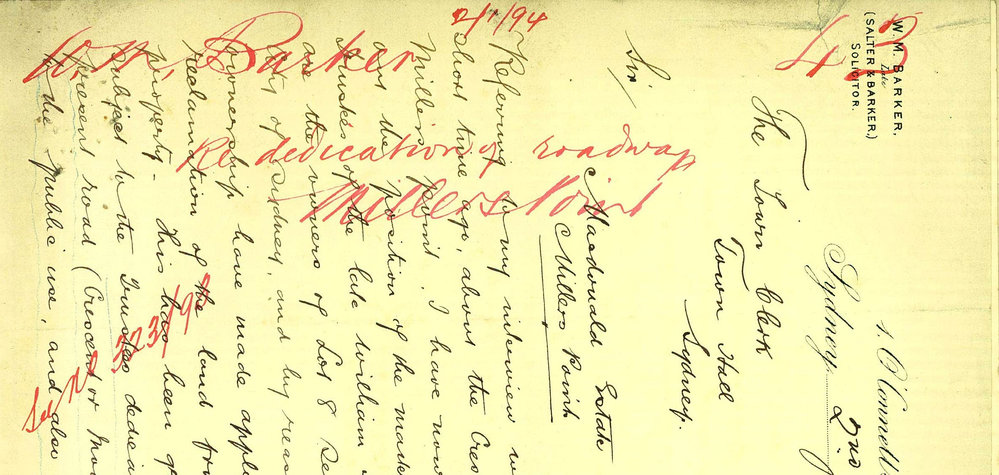 W. M. BARKER,
Late
(SALTER & BARKER,)
SOLICITOR.
O'Connell
Sydney,
2nd
The Town Clerk
Town Hall
Sydney.
Sir/
Macdonald Estate
Millers Point
Referring to my interview
short time ago, about the Cres
Millers Point. I have now
out the position of the
Trustees of the late William
are the owners of Lot 8 Se
of Sydney, and by reas
ownership have made appl
reclamation of the land fro
property - this has been g
subject to the Trustees dedica
present road (Crescent or Mo
to the public use, and also
2/1/94
W. M. Barker
Re dedication of roadway
Millers Point
See No 323/94